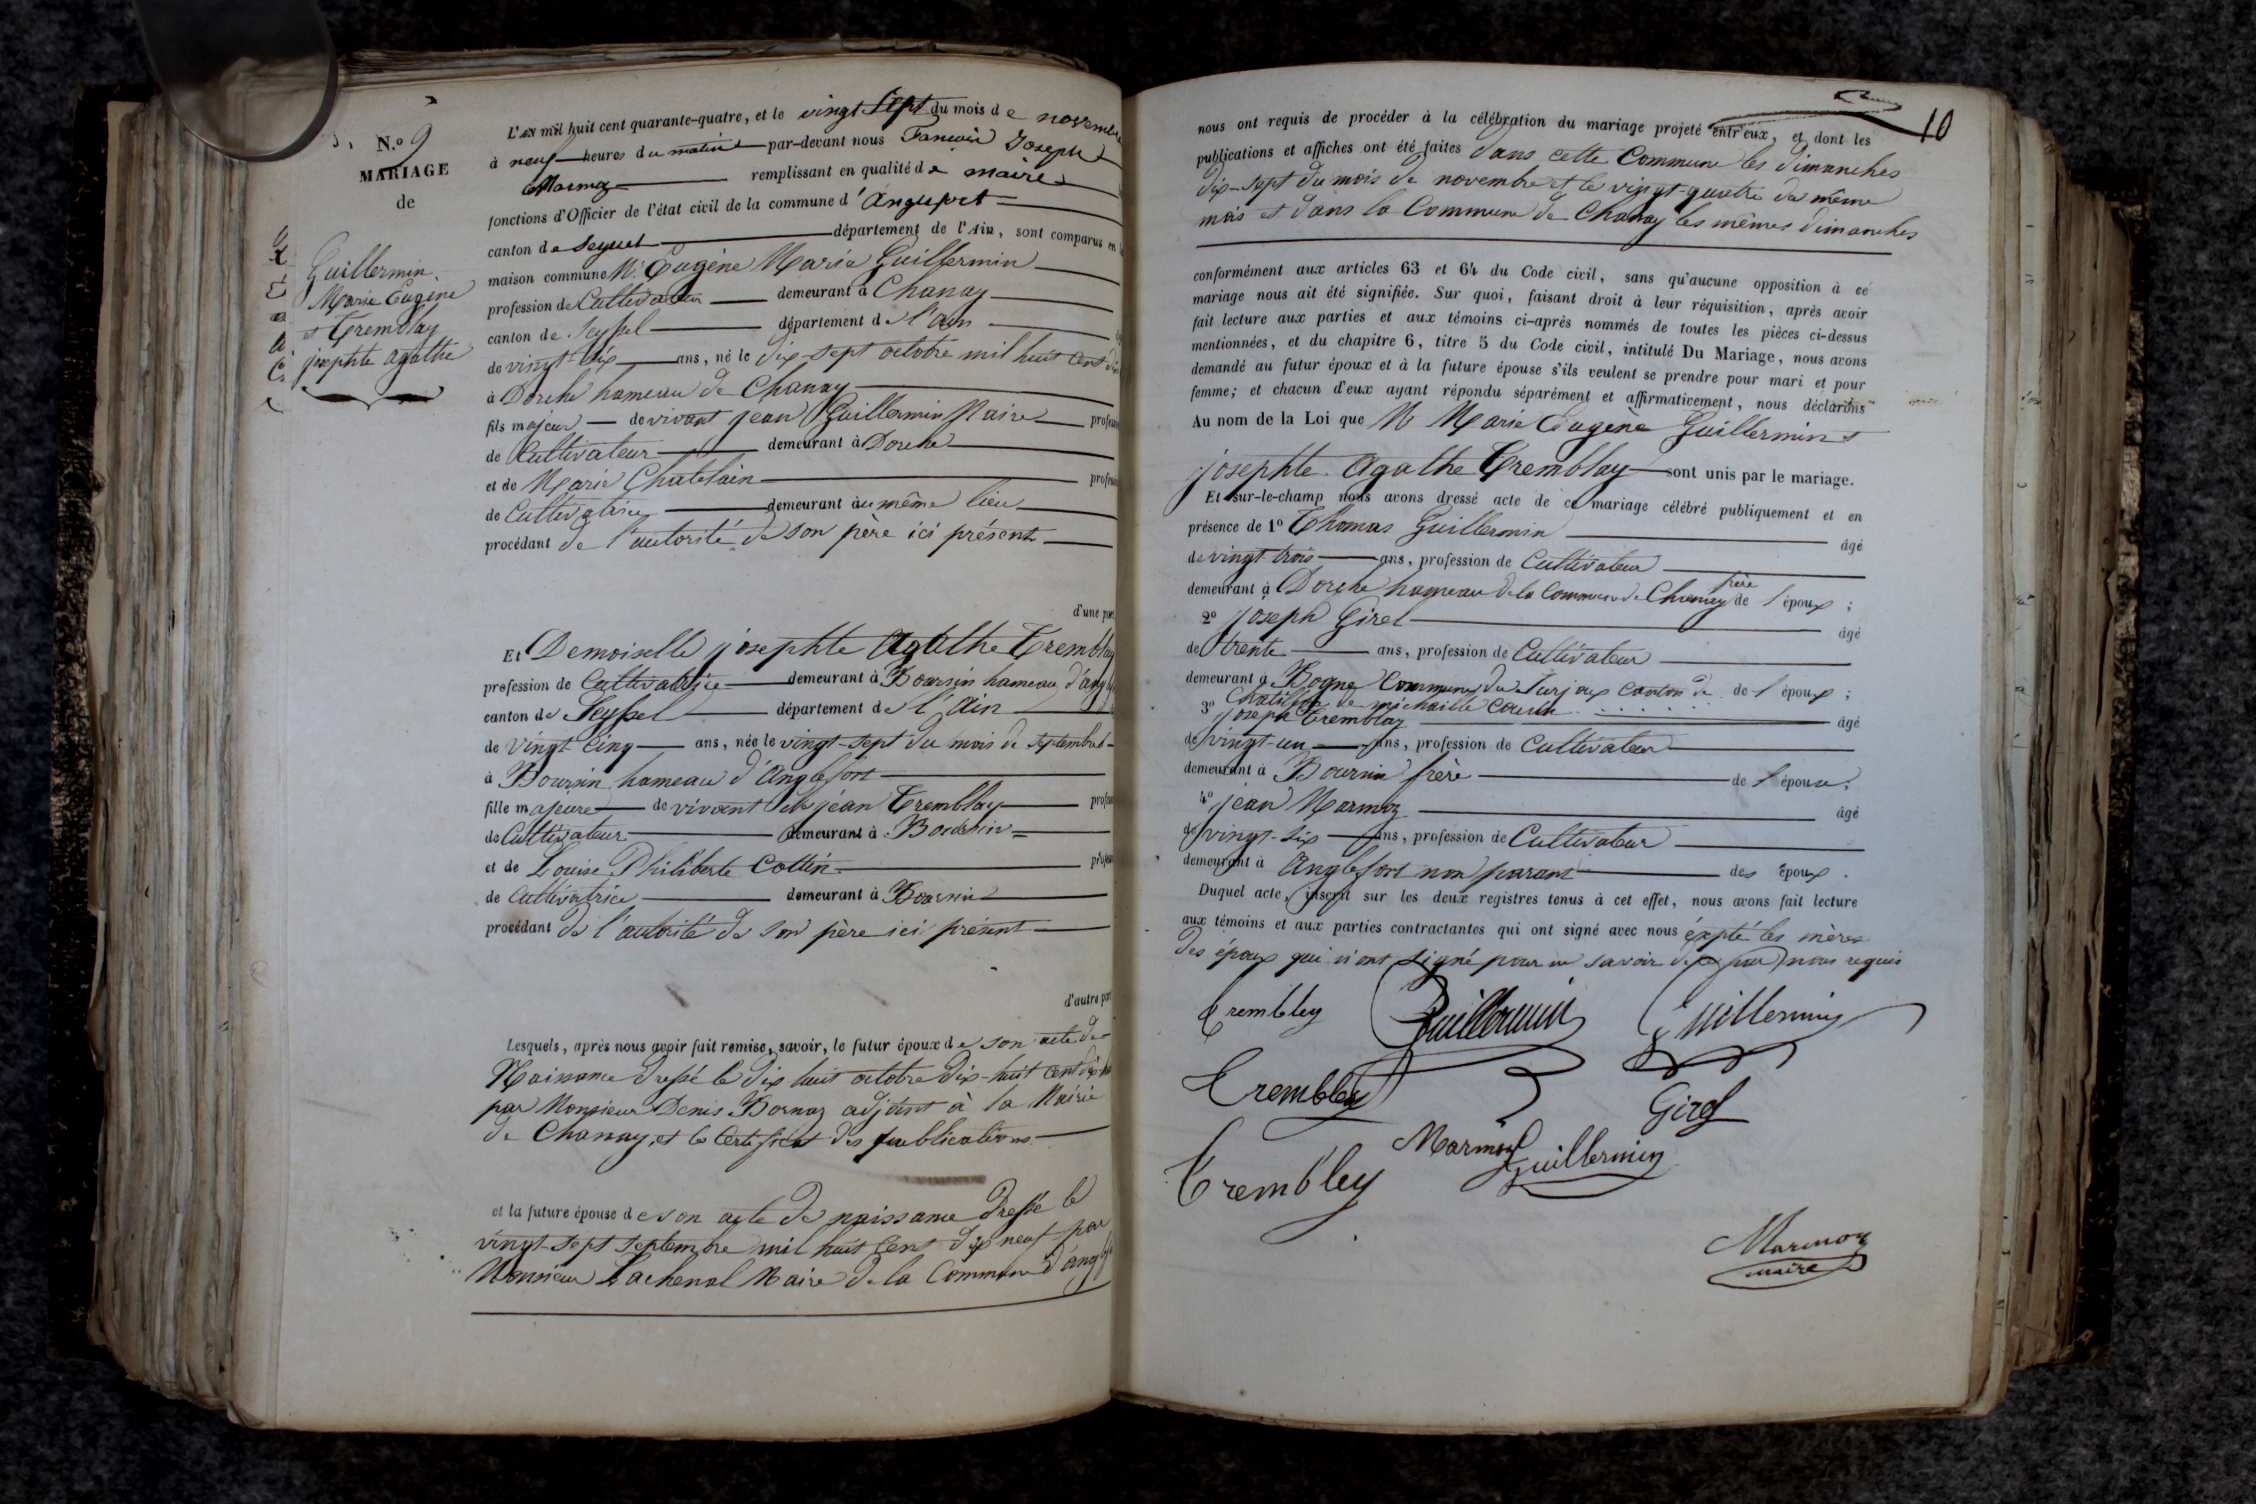 N.o 9
MARIAGE
de
Guillermin
Marie Eugène
et Tremblay
josephte agathe
L'an mil huit cent quarante-quatre, et le vingt sept du mois de novembre
à neuf heures du matin par-devant nous Joseph
Marmoz remplissant en qualité de maire
fonctions d'Officier de l'état civil de la commune d'Anglefort
canton de Seyssel département de l'Ain, sont comparus en la
maison commune Mr Eugène Marie Guillermin
profession de Cultivateur demeurant à Chanay
canton de Seyssel département de l'ain
de vingt-six ans, né le dix-sept octobre mil huit cent dix
à Dorche hameau de Chanay
fils majeur de vivant jean Guillermin Maire profession
de Cultivateur demeurant à Dorche
et de Marie Chatelain profession
de Cultivatrice demeurant au même lieu
procédant de l'autorité de son père ici présent
d'une part
Et Demoiselle josephte Agathe Tremblay
profession de Cultivatrice demeurant à Boursin hameau d'angl
canton de Seyssel département de l'Ain
de Vingt Cinq ans, née le vingt-sept du mois de septembre
à Boursin hameau d'Anglefort
fille majeure de vivant jean Tremblay profession
de Cultivateur demeurant à Boursin
et de Louise Philiberte Cottin profession
de Cultivatrice demeurant à Boursin
procédant de l'autorité de son père ici présent
d'autre part
Lesquels, après nous avoir fait remise, savoir, le futur époux de son acte de
Naissance dressé le dix huit octobre dix-huit cent dix-huit
par Monsieur Denis Bornaz adjoint à la Mairie
de Chanay, et le Certificat des publications
et la future épouse de son acte de naissance dressé le
vingt-sept septembre mil huit cent dix neuf par
Monsieur Lachenal Maire de la Commune d'angl
10
nous ont requis de procéder à la célébration du mariage projeté entr'eux, et dont les
publications et affiches ont été faites dans cette Commune les dimanches
dix-sept du mois de novembre et le vingt-quatre du même
mois et dans la Commune de Chanay les mêmes dimanches
conformément aux articles 63 et 64 du Code civil, sans qu'aucune opposition à ce
mariage nous ait été signifiée. Sur quoi, faisant droit à leur réquisition, après avoir
fait lecture aux parties et aux témoins ci-après nommés de toutes les pièces ci-dessus
mentionnées, et du chapitre 6, titre 5 du Code civil, intitulé Du Mariage, nous avons
demandé au futur époux et à la future épouse s'ils veulent se prendre pour mari et pour
femme; et chacun d'eux ayant répondu séparément et affirmativement, nous déclarons
Au nom de la Loi que Mr Marie Eugène Guillermin et
josephte Agathe Tremblay sont unis par le mariage.
Et sur-le-champ nous avons dressé acte de ce mariage célébré publiquement et en
présence de 1o Thomas Guillermin âgé
de vingt trois ans, profession de Cultivateur
demeurant à Dorche hameau de la Commune de Chanay frère de l'époux;
2o joseph Girel âgé
de trente ans, profession de Cultivateur
demeurant à Bogne Commune de Surjoux canton de de l'époux;
Chatillon de michaille cousin
3o joseph Tremblay âgé
de vingt-un ans, profession de Cultivateur
demeurant à Boursin frère de l'épouse.
4o jean Marmoz âgé
de vingt-six ans, profession de Cultivateur
demeurant à Anglefort non parant des époux.
Duquel acte, inscrit sur les deux registres tenus à cet effet, nous avons fait lecture
aux témoins et aux parties contractantes qui ont signé avec nous éxpté les mères
des époux qui n'ont signé pour ne savoir de ce par nous requis
Trembley Guillermin Guillermin
Trembley Girel
Marmoz Guillermin
Trembley
Marmoz
maire